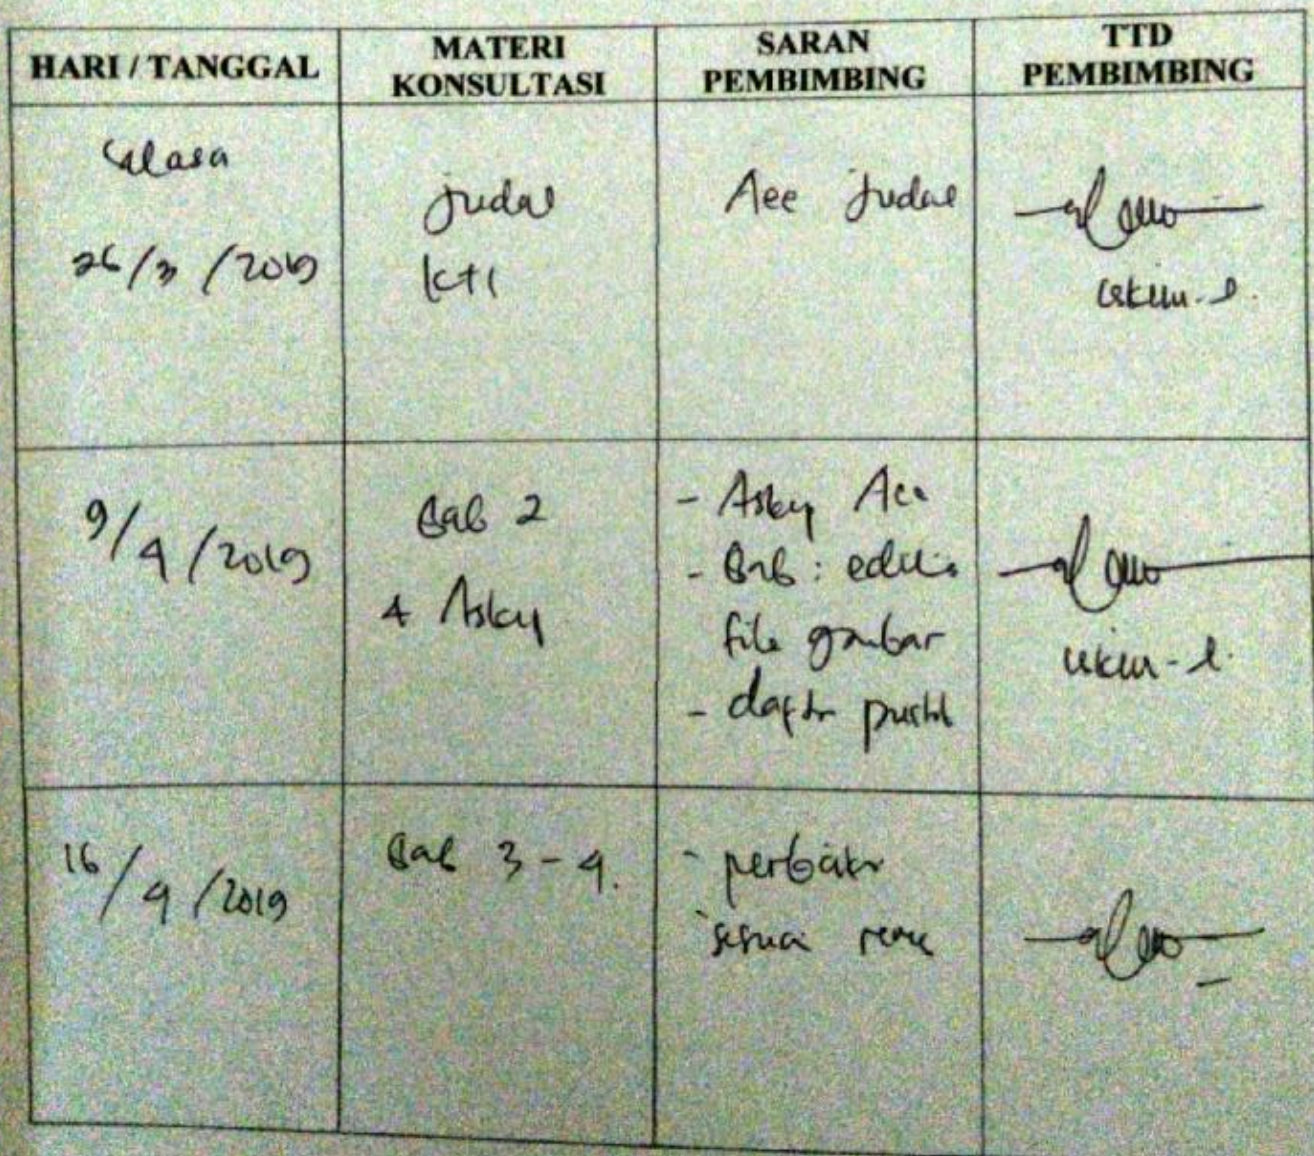 HARI / TANGGAL
MATERI
KONSULTASI
SARAN
PEMBIMBING
TTD
PEMBIMBING
Selasa
26/3/2019
judul
KTI
Acc judul
9/4/2019
Bab 2
+ Askep
- Askep Acc
- Bab : edit
file gambar
- daftar pustk
16/4/2019
Bab 3-4.
- perbaiki
sesuai